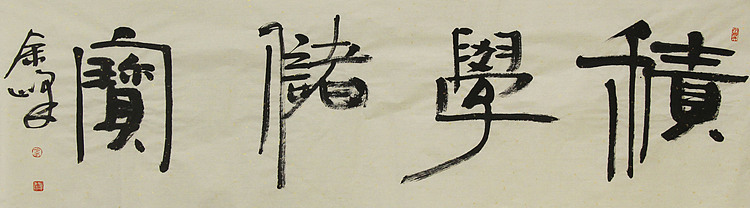 積學儲寶
余峰